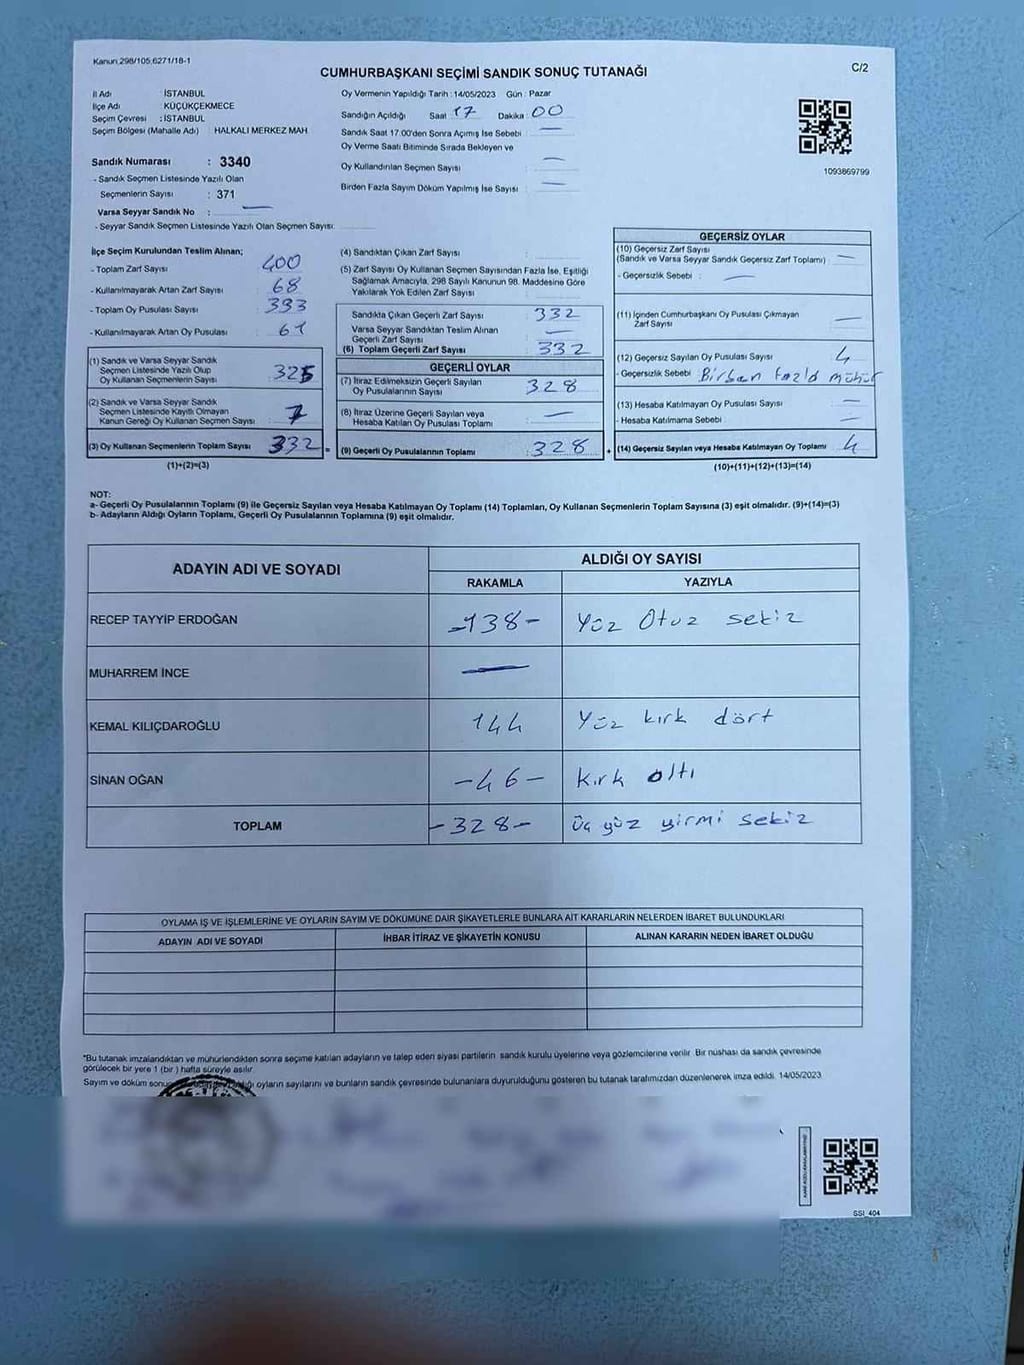 Kanun 298/105.6271/18-1
CUMHURBAŞKANI SEÇİMİ SANDIK SONUÇ TUTANAĞI
C/2
İl Adı : İSTANBUL
İlçe Adı : KÜÇÜKÇEKMECE
Seçim Çevresi : İSTANBUL
Seçim Bölgesi (Mahalle Adı) HALKALI MERKEZ MAH
Sandık Numarası : 3340
- Sandık Seçmen Listesinde Yazılı Olan
Seçmenlerin Sayısı : 371
Varsa Seyyar Sandık No : —
- Seyyar Sandık Seçmen Listesinde Yazılı Olan Seçmen Sayısı
Oy Vermenin Yapıldığı Tarih : 14/05/2023 Gün : Pazar
Sandığın Açıldığı Saat 17 Dakika : 00
Sandık Saat 17:00'den Sonra Açımış İse Sebebi —
Oy Verme Saati Bitiminde Sırada Bekleyen ve
Oy Kullandırılan Seçmen Sayısı —
Birden Fazla Sayım Döküm Yapılmış İse Sayısı —
1093869799
İlçe Seçim Kurulundan Teslim Alınan;
- Toplam Zarf Sayısı : 400
- Kullanılmayarak Artan Zarf Sayısı : 68
- Toplam Oy Pusulası Sayısı : 393
- Kullanılmayarak Artan Oy Pusulası : 61
(1) Sandık ve Varsa Seyyar Sandık
Seçmen Listesinde Yazılı Olup
Oy Kullanan Seçmenlerin Sayısı : 325
(2) Sandık ve Varsa Seyyar Sandık
Seçmen Listesinde Kayıtlı Olmayan
Kanun Gereği Oy Kullanan Seçmen Sayısı : 7
(3) Oy Kullanan Seçmenlerin Toplam Sayısı : 332
(1)+(2)=(3)
(4) Sandıktan Çıkan Zarf Sayısı
(5) Zarf Sayısı Oy Kullanan Seçmen Sayısından Fazla İse, Eşitliği
Sağlamak Amacıyla, 298 Sayılı Kanunun 98. Maddesine Göre
Yakılarak Yok Edilen Zarf Sayısı
Sandıkta Çıkan Geçerli Zarf Sayısı : 332
Varsa Seyyar Sandıktan Teslim Alınan
Geçerli Zarf Sayısı : —
(6) Toplam Geçerli Zarf Sayısı : 332
GEÇERLİ OYLAR
(7) İtiraz Edilmeksizin Geçerli Sayılan
Oy Pusulasının Sayısı : 328
(8) İtiraz Üzerine Geçerli Sayılan veya
Hesaba Katılan Oy Pusulası Toplamı : —
= (9) Geçerli Oy Pusulalarının Toplamı : 328
GEÇERSİZ OYLAR
(10) Geçersiz Zarf Sayısı
(Sandık ve Varsa Seyyar Sandık Geçersiz Zarf Toplamı) : —
- Geçersizlik Sebebi : —
(11) İçinden Cumhurbaşkanı Oy Pusulası Çıkmayan
Zarf Sayısı : —
(12) Geçersiz Sayılan Oy Pusulası Sayısı : 4
- Geçersizlik Sebebi : Birden fazla mühür
(13) Hesaba Katılmayan Oy Pusulası Sayısı : —
- Hesaba Katılmama Sebebi : —
+ (14) Geçersiz Sayılan veya Hesaba Katılmayan Oy Toplamı : 4
(10)+(11)+(12)+(13)=(14)
NOT:
a- Geçerli Oy Pusulalarının Toplamı (9) ile Geçersiz Sayılan veya Hesaba Katılmayan Oy Toplamı (14) Toplamları, Oy Kullanan Seçmenlerin Toplam Sayısına (3) eşit olmalıdır. (9)+(14)=(3)
b- Adayların Aldığı Oyların Toplamı, Geçerli Oy Pusulalarının Toplamına (9) eşit olmalıdır.
ADAYIN ADI VE SOYADI ALDIĞI OY SAYISI
RAKAMLA YAZIYLA
RECEP TAYYİP ERDOĞAN -138- Yüz Otuz sekiz
MUHARREM İNCE —
KEMAL KILIÇDAROĞLU 144 Yüz kırk dört
SİNAN OĞAN -46- Kırk altı
TOPLAM -328- Üç yüz yirmi sekiz
OYLAMA İŞ VE İŞLEMLERİNE VE OYLARIN SAYIM VE DÖKÜMÜNE DAİR ŞİKAYETLERLE BUNLARA AİT KARARLARIN NELERDEN İBARET BULUNDUKLARI
ADAYIN ADI VE SOYADI İHBAR İTİRAZ VE ŞİKAYETİN KONUSU ALINAN KARARIN NEDEN İBARET OLDUĞU
*Bu tutanak imzalandıktan ve mühürlendikten sonra seçime katılan adayların ve talep eden siyasi partilerin sandık kurulu üyelerine veya gözlemcilerine verilir. Bir nüshası da sandık çevresinde
görülecek bir yere 1 (bir) hafta süreyle asılır.
Sayım ve döküm oyların sayılarını ve bunların sandık çevresinde bulunanlara duyurulduğunu gösteren bu tutanak tarafımızdan düzenlenerek imza edildi. 14/05/2023
SSI_404